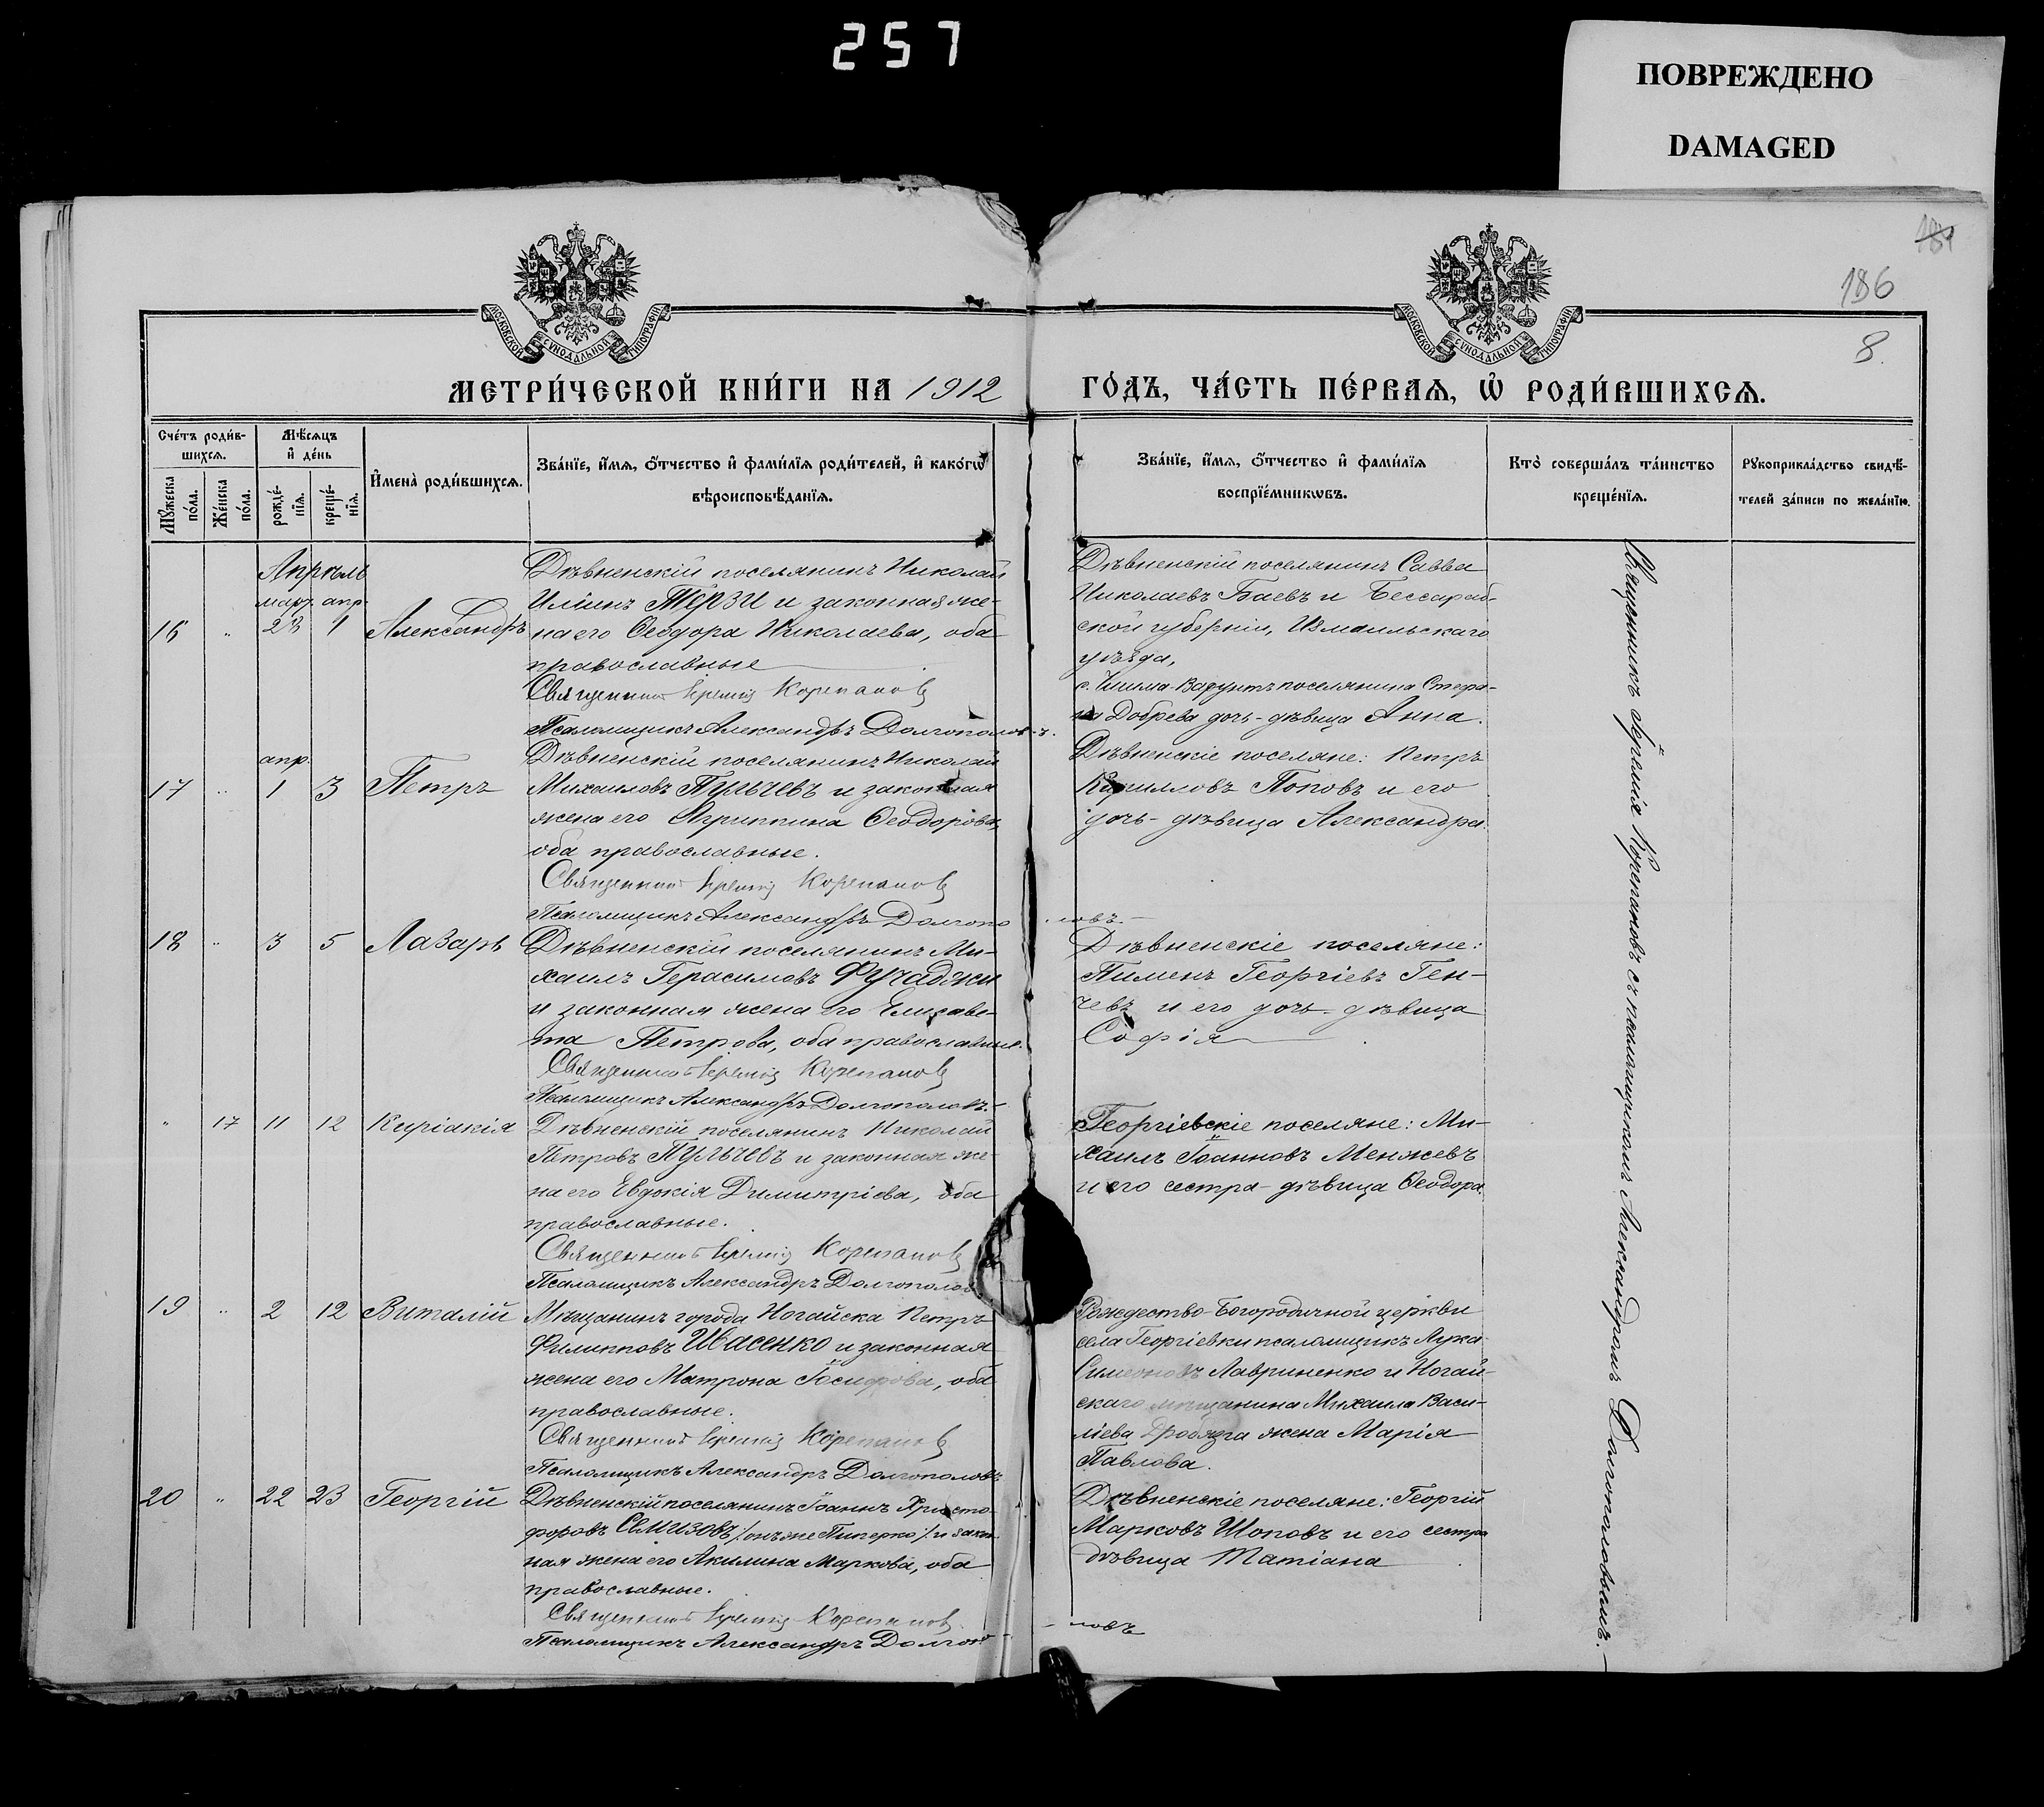 257
ПОВРЕЖДЕНО
DAMAGED
181
186
8.
МОСКОВСКОЙ СѴНОДАЛЬНОЙ ТИПОГРАФІИ
МОСКОВСКОЙ СѴНОДАЛЬНОЙ ТИПОГРАФІИ
МЕТРИ́ЧЕСКОЙ КНИ́ГИ НА 1912 ГО́ДЪ, ЧА́СТЬ ПЕ́РВАѦ, Ѡ҆ РОДИ́ВШИХСѦ.
Сче́тъ роди́в-
шихсѧ.
Мꙋжеска
по́ла.
Же́нска
по́ла.
Мѣ́сѧцъ
и҆ де́нь
рожде́-
нїѧ.
креще́-
нїѧ.
И҆мена̀ роди́вшихсѧ.
Зва́нїе, и҆́мѧ, ѻ҆́тчество и҆ фами́лїѧ роди́телей, и҆ како́гѡ
вѣроисповѣ́данїѧ.
Зва́нїе, и҆́мѧ, ѻ҆́тчество и҆ фами́лїѧ
воспрїе́мникѡвъ.
Кто̀ соверша́лъ та́инство
креще́нїѧ.
Рꙋкоприкла́дство свидѣ́-
телей за́писи по жела́нїю.
Апрѣль
март. апр.
16 " 28 1 Александръ
Дѣвненскій поселянинъ Николай
Иліинъ Терзи и законная же-
на его Ѳеодора Николаева, оба
православные
Священникъ Іеремія Корепановъ
Псаломщикъ Александръ Долгополовъ.
Дѣвненскій поселянинъ Савва
Николаевъ Баевъ и Бессараб-
ской губерніи, Измаильскаго
уѣзда,
с. Чишма-Варунтъ поселянина Стефа-
на Добрева дочь-дѣвица Анна.
апр.
17 " 1 3 Петръ
Дѣвненскій поселянинъ Николай
Михаиловъ Пульчевъ и законная
жена его Агриппина Ѳеодорова,
оба православные.
Священникъ Іеремія Корепановъ
Псаломщикъ Александръ Долгополовъ.
Дѣвненскіе поселяне: Петръ
Кирилловъ Поповъ и его
дочь-дѣвица Александра.
18 " 3 5 Лазарь
Дѣвненскій поселянинъ Ми-
хаилъ Герасимовъ Фучаджи
и законная жена его Елисаве-
та Петрова, оба православные.
Священникъ Іеремія Корепановъ
Псаломщикъ Александръ Долгополовъ.
Дѣвненскіе поселяне:
Пименъ Георгіевъ Ген-
чевъ и его дочь-дѣвица
Софія
" 17 11 12 Киріакія
Дѣвненскій поселянинъ Николай
Петровъ Пульчевъ и законная же-
на его Евдокія Димитріева, оба
православные.
Священникъ Іеремія Корепановъ
Псаломщикъ Александръ Долгополовъ
Георгіевскіе поселяне: Ми-
хаилъ Іоанновъ Менжевъ
и его сестра-дѣвица Ѳеодора.
19 " 2 12 Виталій
Мѣщанинъ города Ногайска Петръ
Филипповъ Ивасенко и законная
жена его Матрона Іосифова, оба
православные.
Священникъ Іеремія Корепановъ
Псаломщикъ Александръ Долгополовъ
Рождество-Богородичной церкви
села Георгіевки псаломщикъ Лука
Симеоновъ Лавриненко и Ногай-
скаго мѣщанина Михаила Васи-
ліева Дробязга жена Марія
Павлова.
20 " 22 23 Георгій
Дѣвненскій поселянинъ Іоаннъ Христо-
форовъ Семизовъ /онъ же Пиперко/ и закон-
ная жена его Акилина Маркова, оба
православные.
Священникъ Іеремія Корепановъ
Псаломщикъ Александръ Долгополовъ
Дѣвненскіе поселяне: Георгій
Марковъ Шоповъ и его сестра
дѣвица Татіана
Священникъ Іеремія Корепановъ съ псаломщикомъ Александромъ Долгополовымъ.